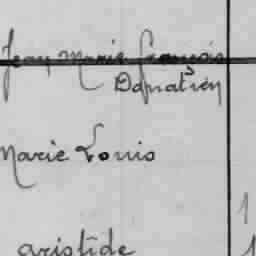 Jean Marie François
Donatien
Marie Louis
aristide